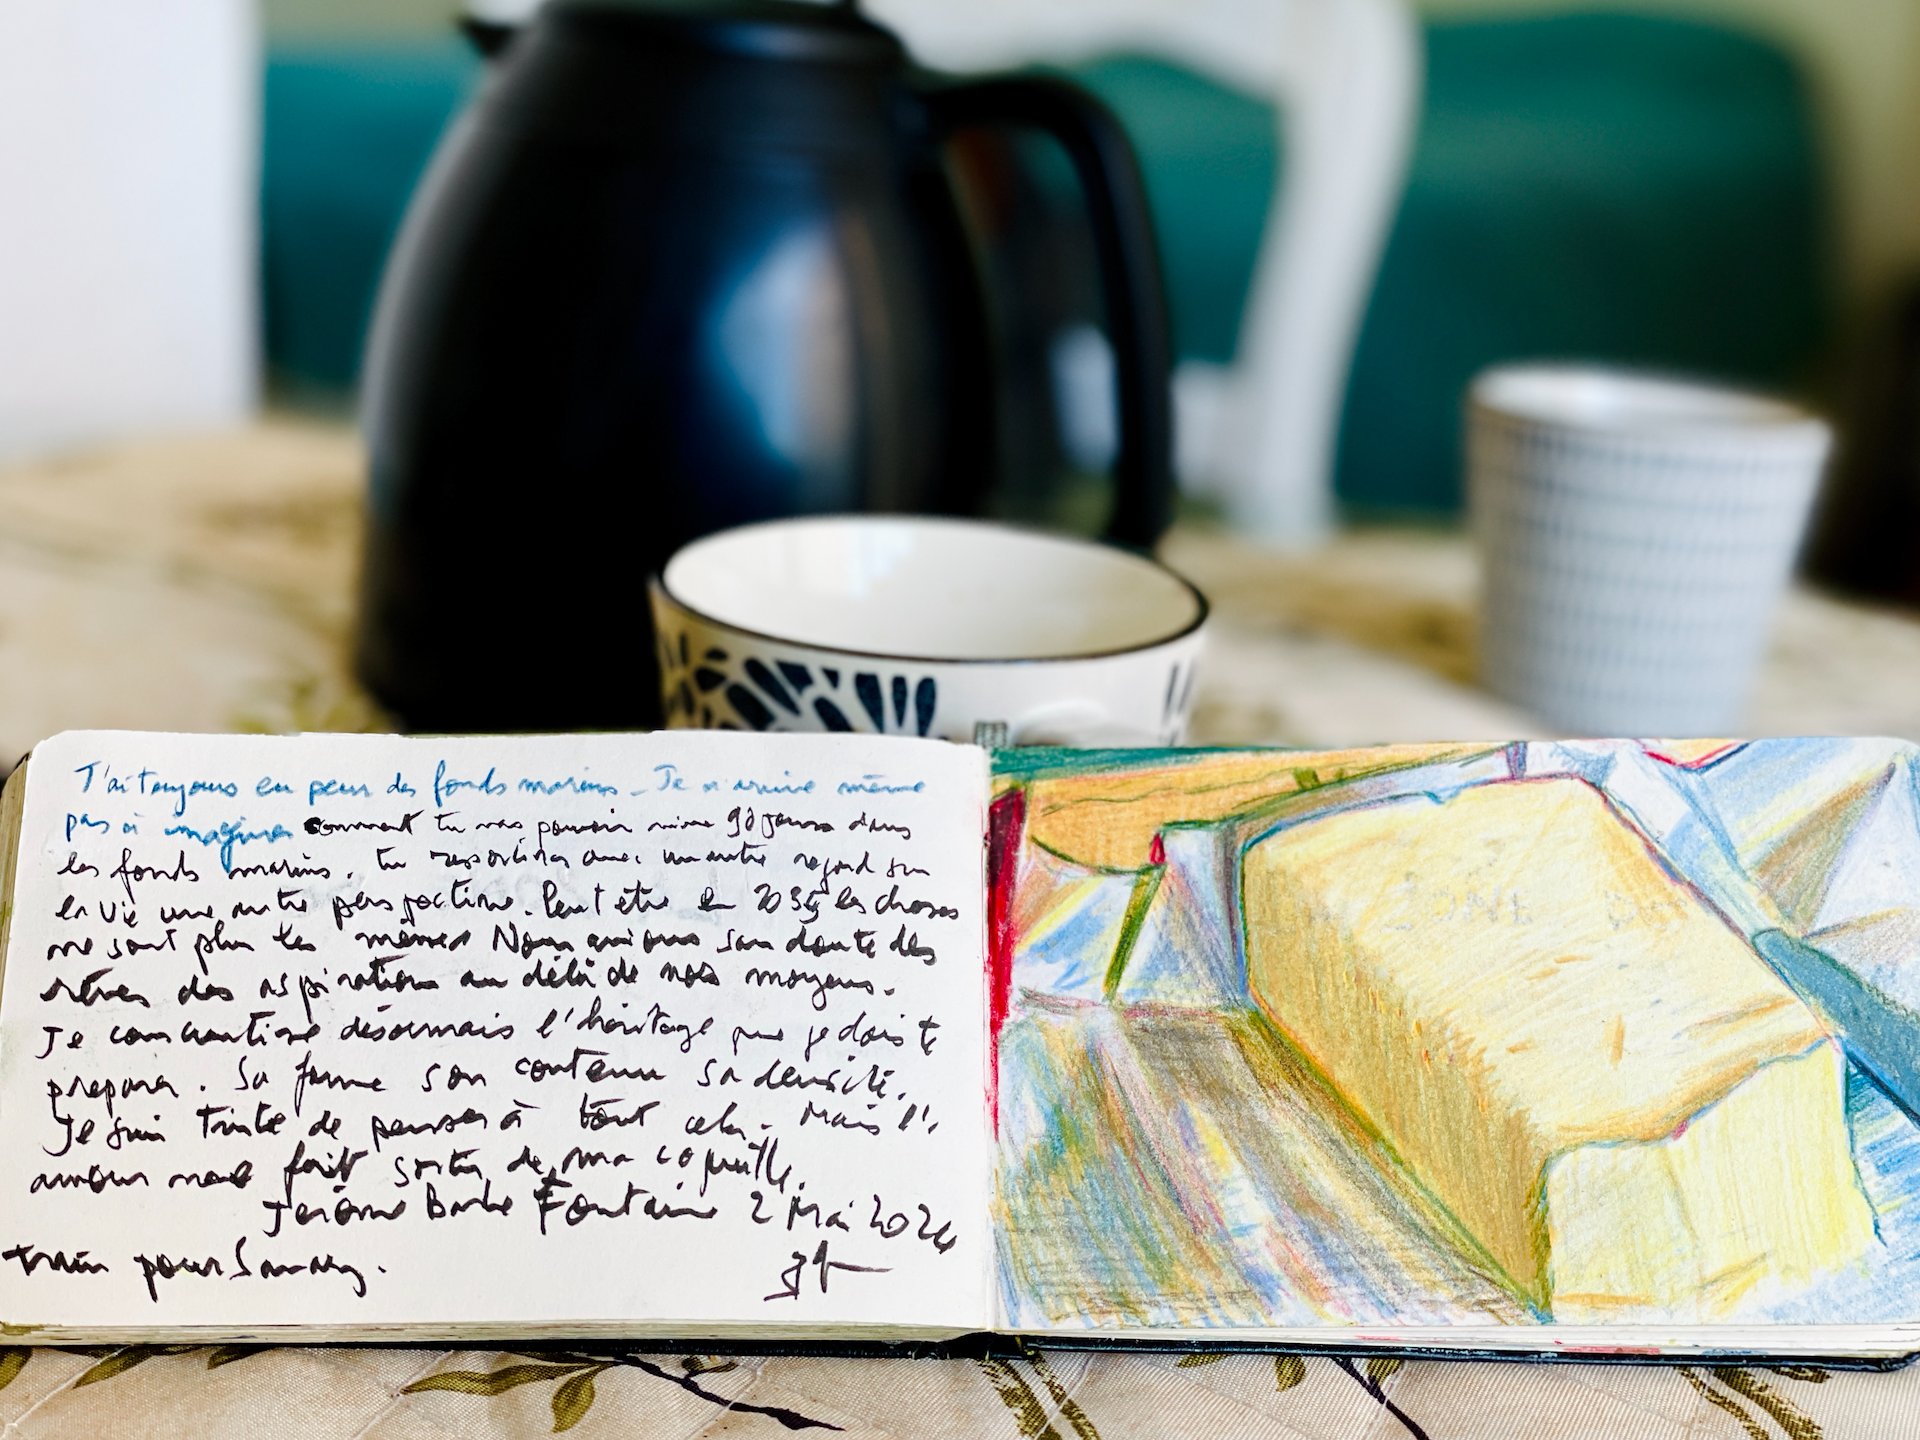 J'ai toujours eu peur des fonds marins - Je n'arrive même
pas à imaginer comment tu vas pouvoir vivre 90 jours dans
les fonds marins. tu ressortiras avec un autre regard sur
la vie une autre perspective. Peut être en 2035 les choses
ne sont plus les mêmes Nous avions sans doute des
rêves des aspirations au délà de nos moyens.
Je conscientise désormais l'héritage que je dois te
preparer. Sa forme son contenu sa densité.
Je suis triste de penser à tout cela. Mais l'
amour me fait sortir de ma coquille.
Jerôme Barbe Fontaine 2 Mai 2024
train pour Sanary.